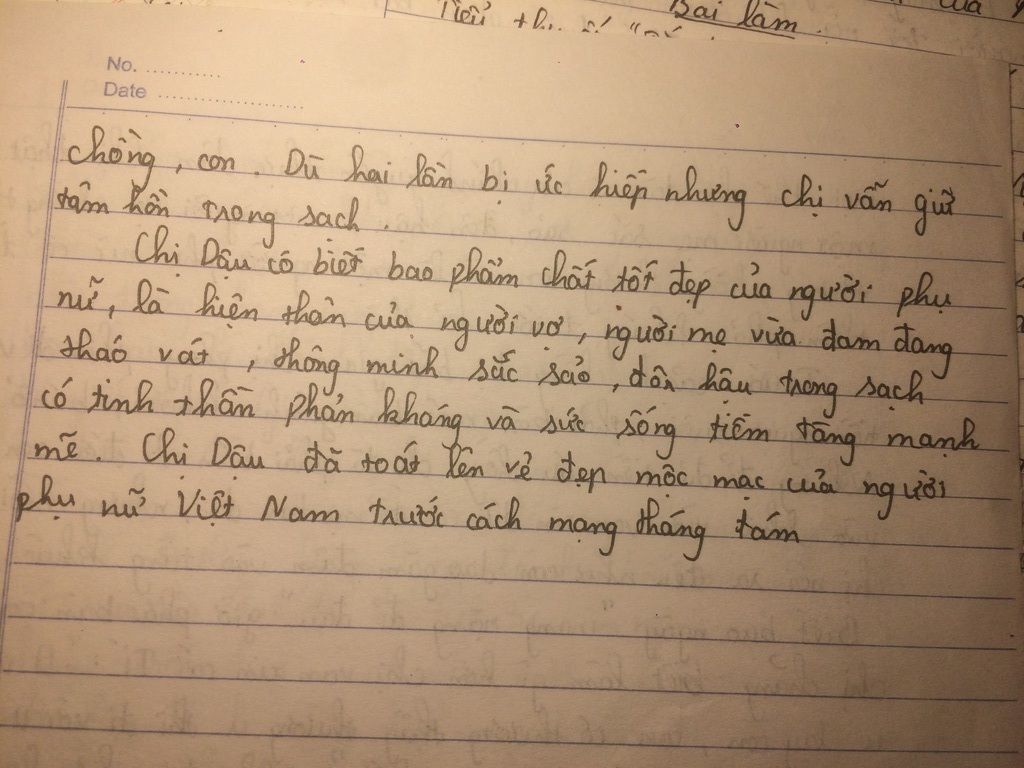 Bài làm
No. ...........
Date ........................
chồng, con. Dù hai lần bị ức hiếp nhưng chị vẫn giữ
tâm hồn trong sạch.
Chị Dậu có biết bao phẩm chất tốt đẹp của người phụ
nữ, là hiện thân của người vợ, người mẹ vừa đam đang
tháo vát, thông minh sắc sảo, đôn hậu trong sạch
có tinh thần phản kháng và sức sống tiềm tàng mạnh
mẽ. Chị Dậu đã toát lên vẻ đẹp mộc mạc của người
phụ nữ Việt Nam trước cách mạng tháng tám